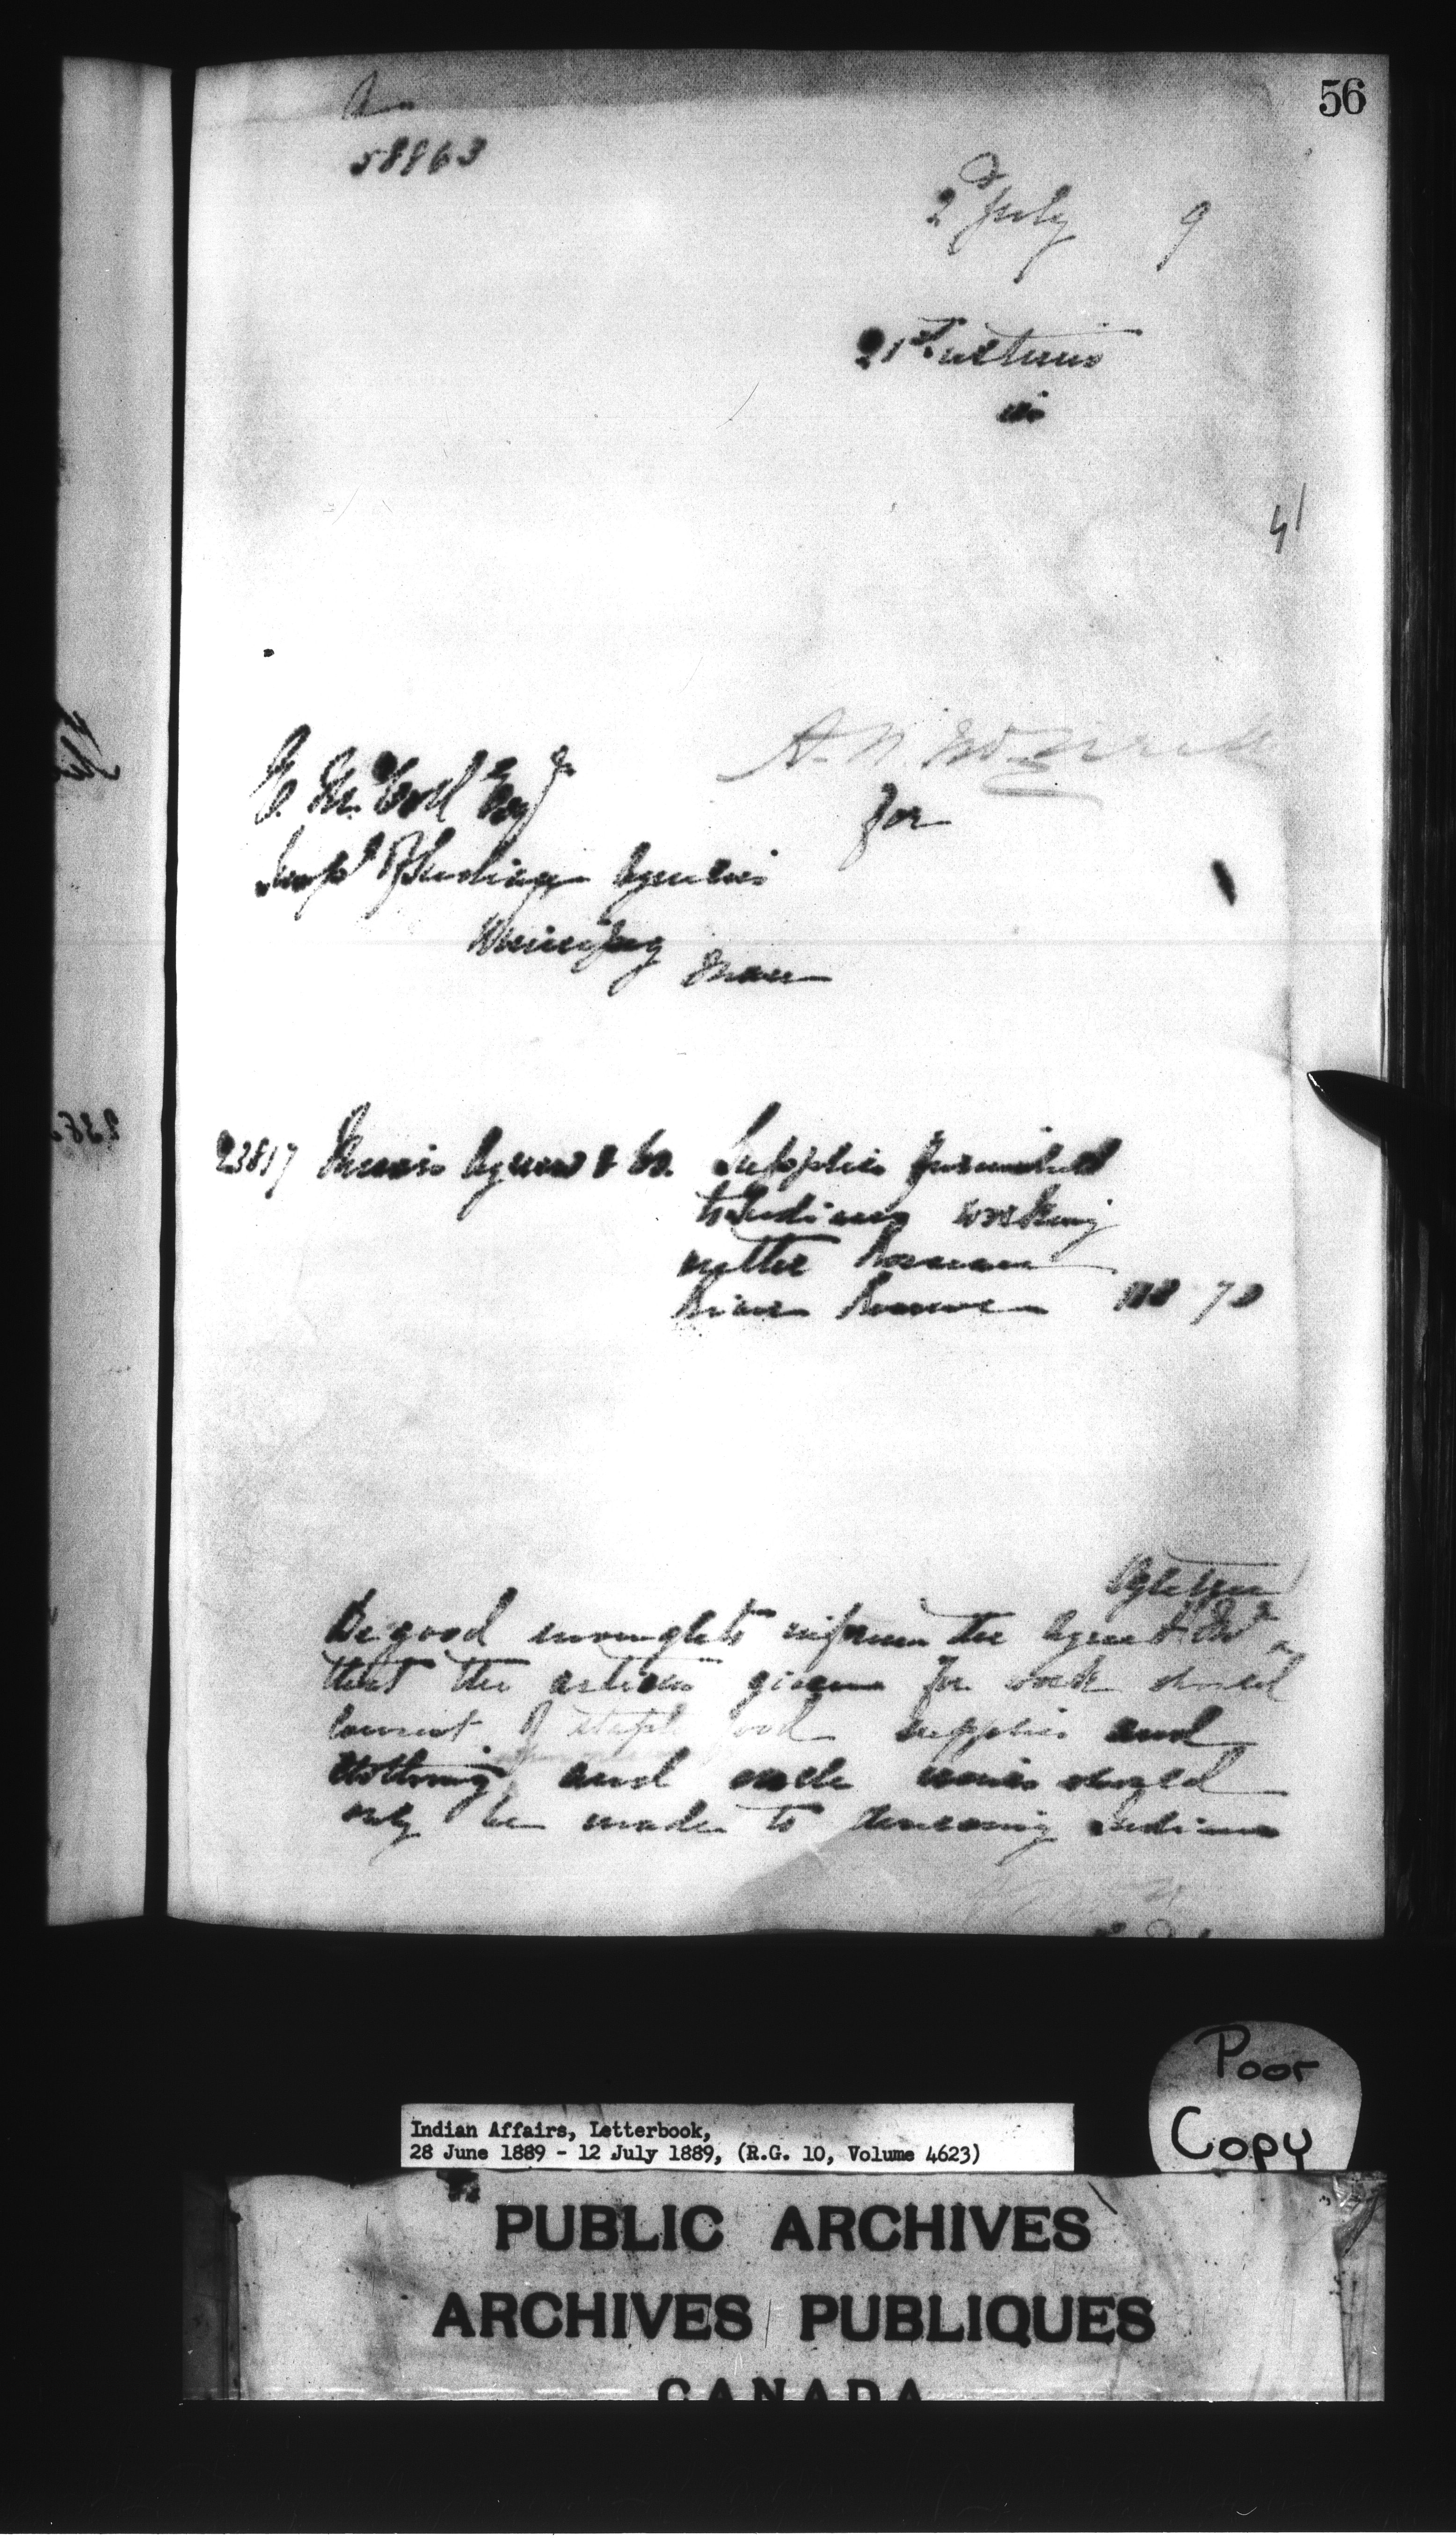 56
58863
2d July 9
21st ultimo
in
41
E. McColl Esqr
for
Supt Indian Agencies
Winnipeg
Man
23817 Agnew & Co. Supplies furnished
to Indians working
on the
River Reserve 118 70
Be good enough to inform the Agent
that the articles given for work should
consist of staple food supplies and
clothing, and such issues should
only be made to deserving Indians
Poor
Copy
Indian Affairs, Letterbook,
28 June 1889 - 12 July 1889, (R.G. 10, Volume 4623)
PUBLIC ARCHIVES
ARCHIVES PUBLIQUES
CANADA